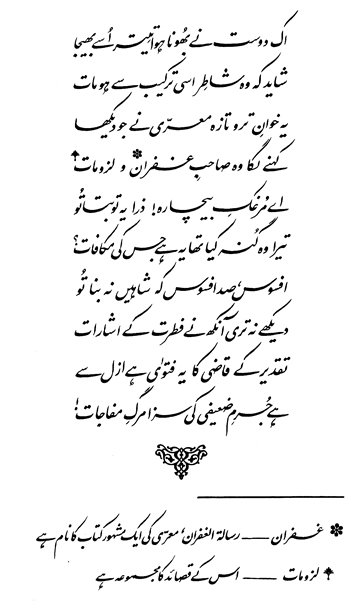 اک دوست نے بھونا ہوا تیتر اُسے بھیجا
شاید کہ وہ شاطر اسی ترکیب سے ہو مات
یہ خوانِ تر و تازہ معرّی نے جو دیکھا
کہنے لگا وہ صاحبِ غفران* و لزومات
اے مُرغکِ بیچارہ! ذرا یہ تو بتا تُو
تیرا وہ گُنہ کیا تھا یہ ہے جس کی مکافات؟
افسوس، صد افسوس کہ شاہیں نہ بنا تُو
دیکھے نہ تری آنکھ نے فطرت کے اشارات
تقدیر کے قاضی کا یہ فتویٰ ہے ازل سے
ہے جُرمِ ضعیفی کی سزا مرگِ مفاجات!
* غفران —— رسالۃ الغفران، معرّی کی ایک مشہور کتاب کا نام ہے
لزومات —— اس کے قصائد کا مجموعہ ہے